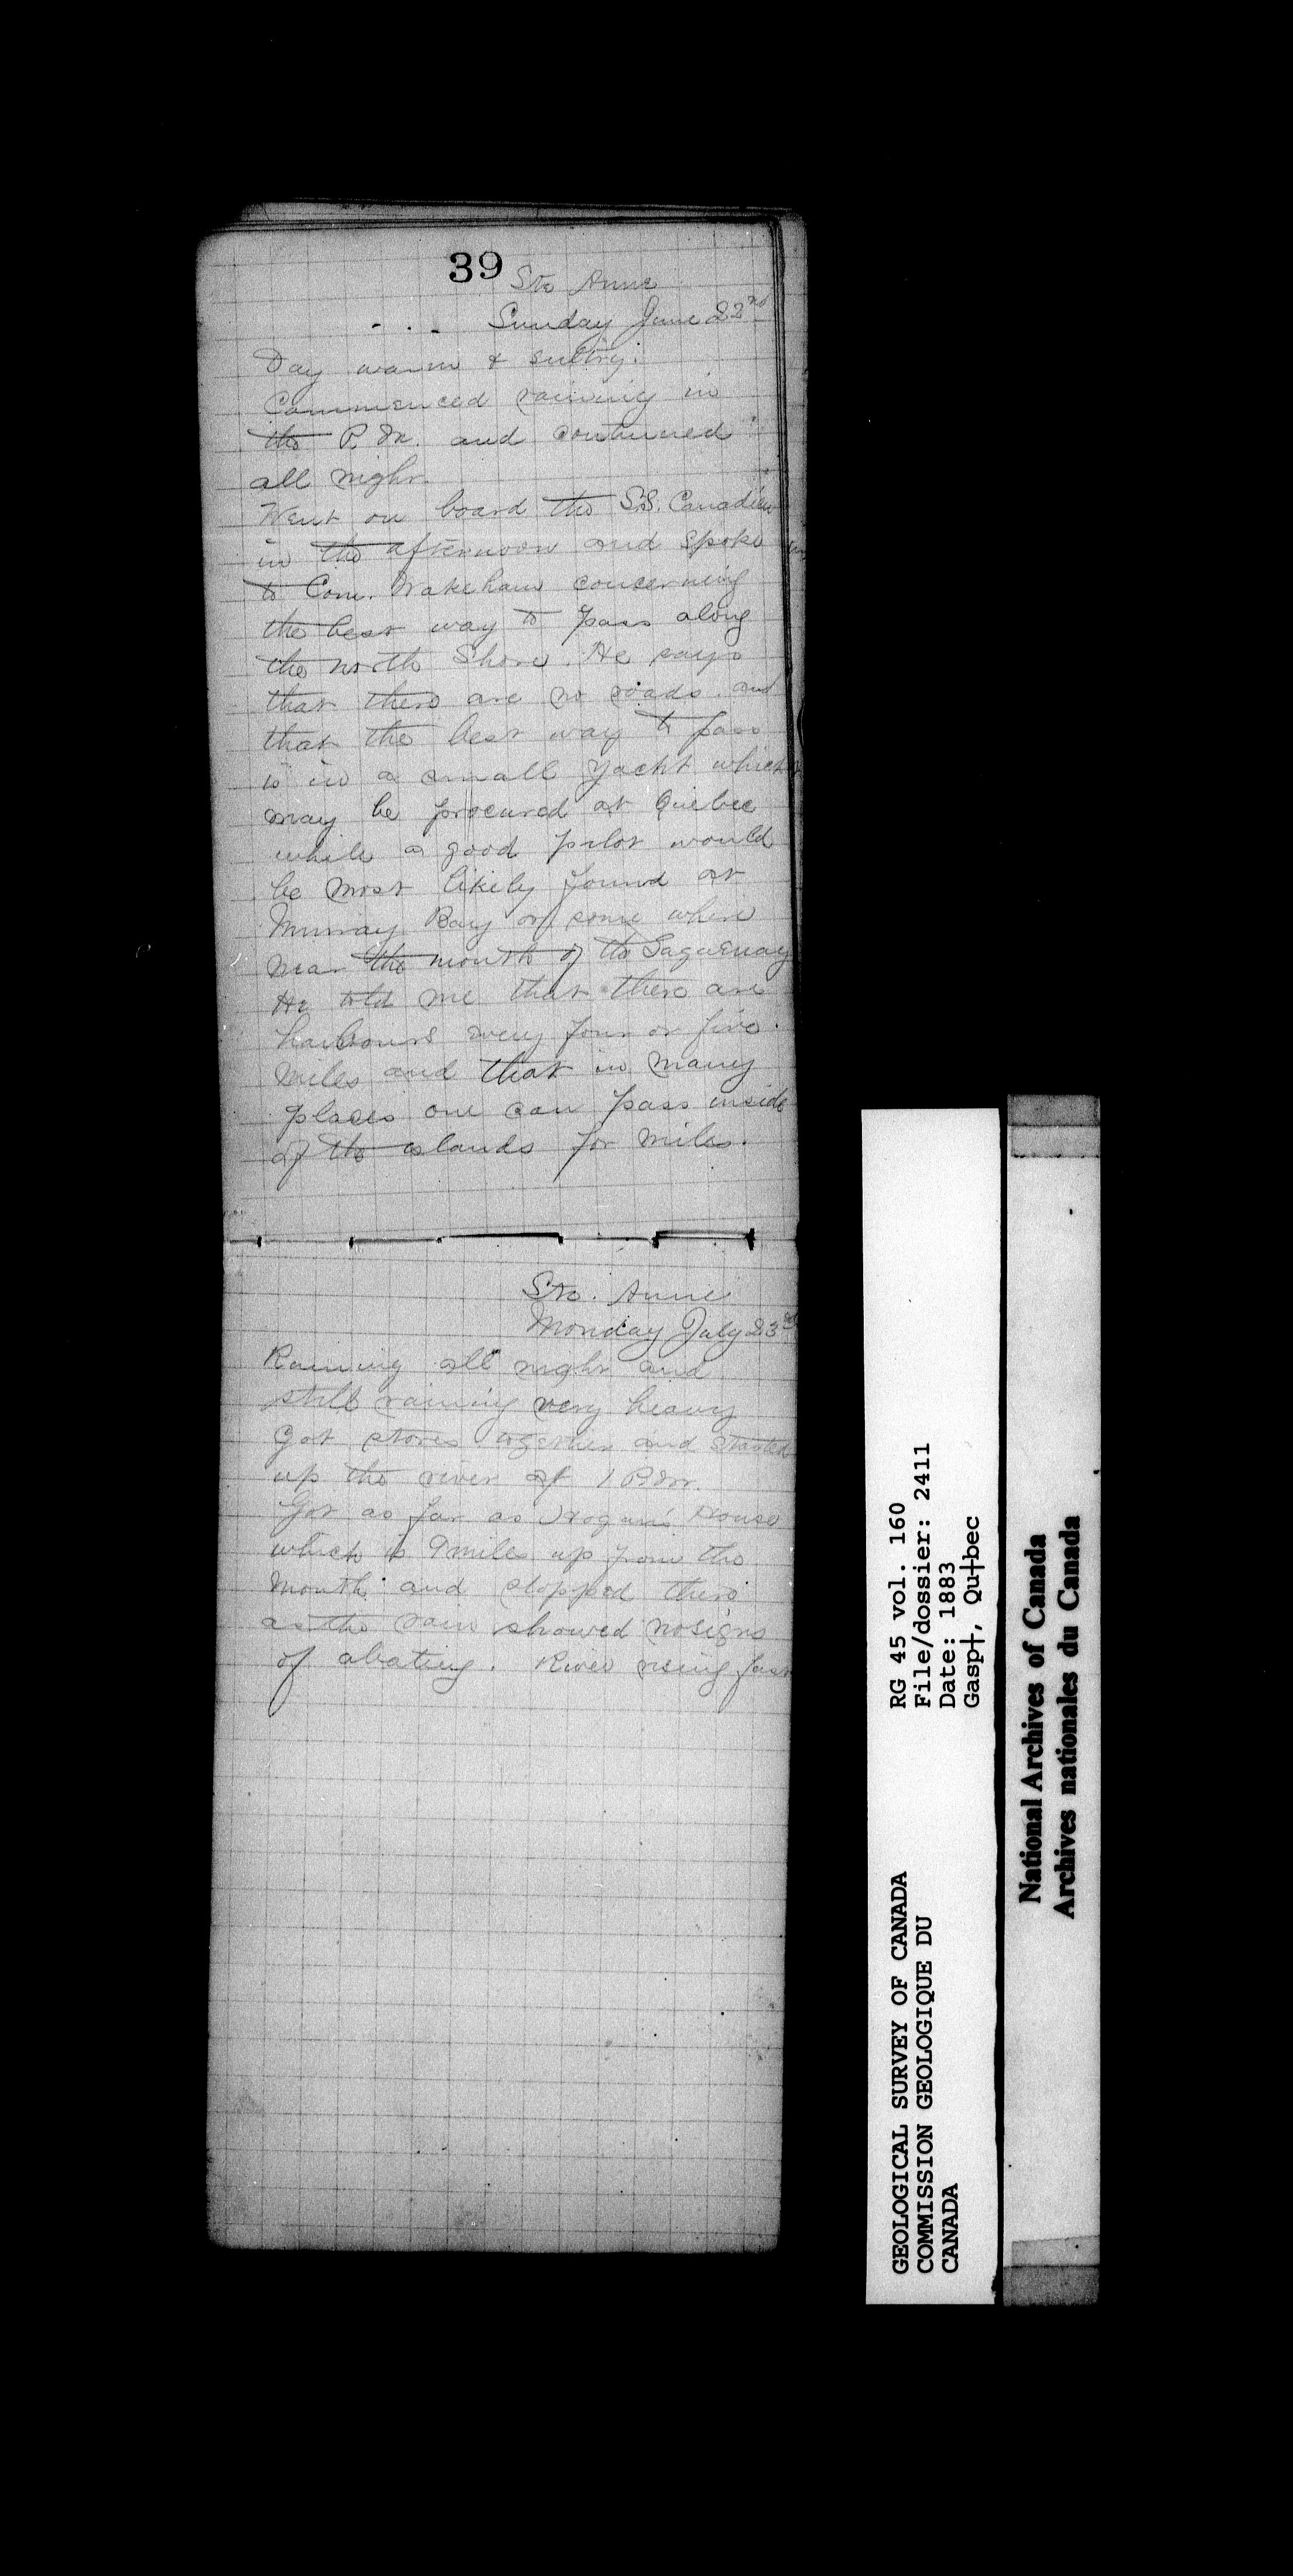 39
Ste Anne
Sunday June 22nd
Day warm & sultry.
Commenced raining in
the P.M. and continued
all night.
Went on board the S.S. Canadien
in the afternoon and spoke
to Com. Wakeham concerning
the best way to pass along
the north Shore. He says
that there are no roads and
that the best way to pass
is in a small yacht which
may be procured at Quebec
while a good pilot would
be most likely found at
Murray Bay or some where
near the mouth of the Saguenay
He told me that there are
harbours every four or five
miles and that in many
places one can pass inside
of the islands for miles.
Ste. Anne
Monday July 23rd
Raining all night and
still raining very heavy
Got stores together and started
up the river at 1 P.M.
Got as far as Hogan's House
which is 9 miles up from the
mouth and stopped there
as the rain showed no signs
of abating. River rising fast
RG 45 vol. 160
File/dossier: 2411
Date: 1883
Gasp†, Qu†bec
GEOLOGICAL SURVEY OF CANADA
COMMISSION GEOLOGIQUE DU
CANADA
National Archives of Canada
Archives nationales du Canada